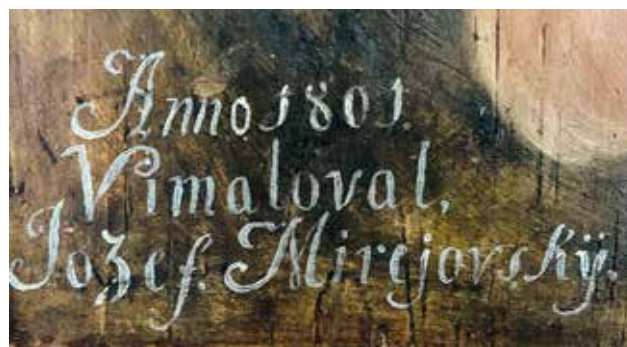 Anno 1801.
Vimaloval,
Jozef. Mirejovskÿ.